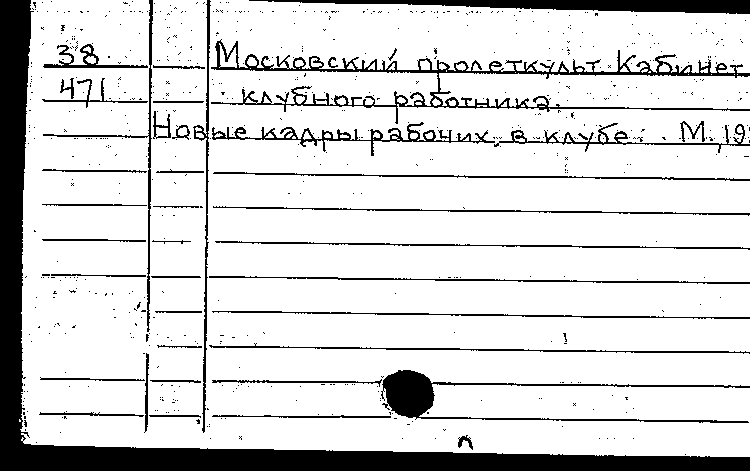 38 Московский пролеткульт. Кабинет
471 клубного работника.
Новые кадры рабочих в клубе. М., 19